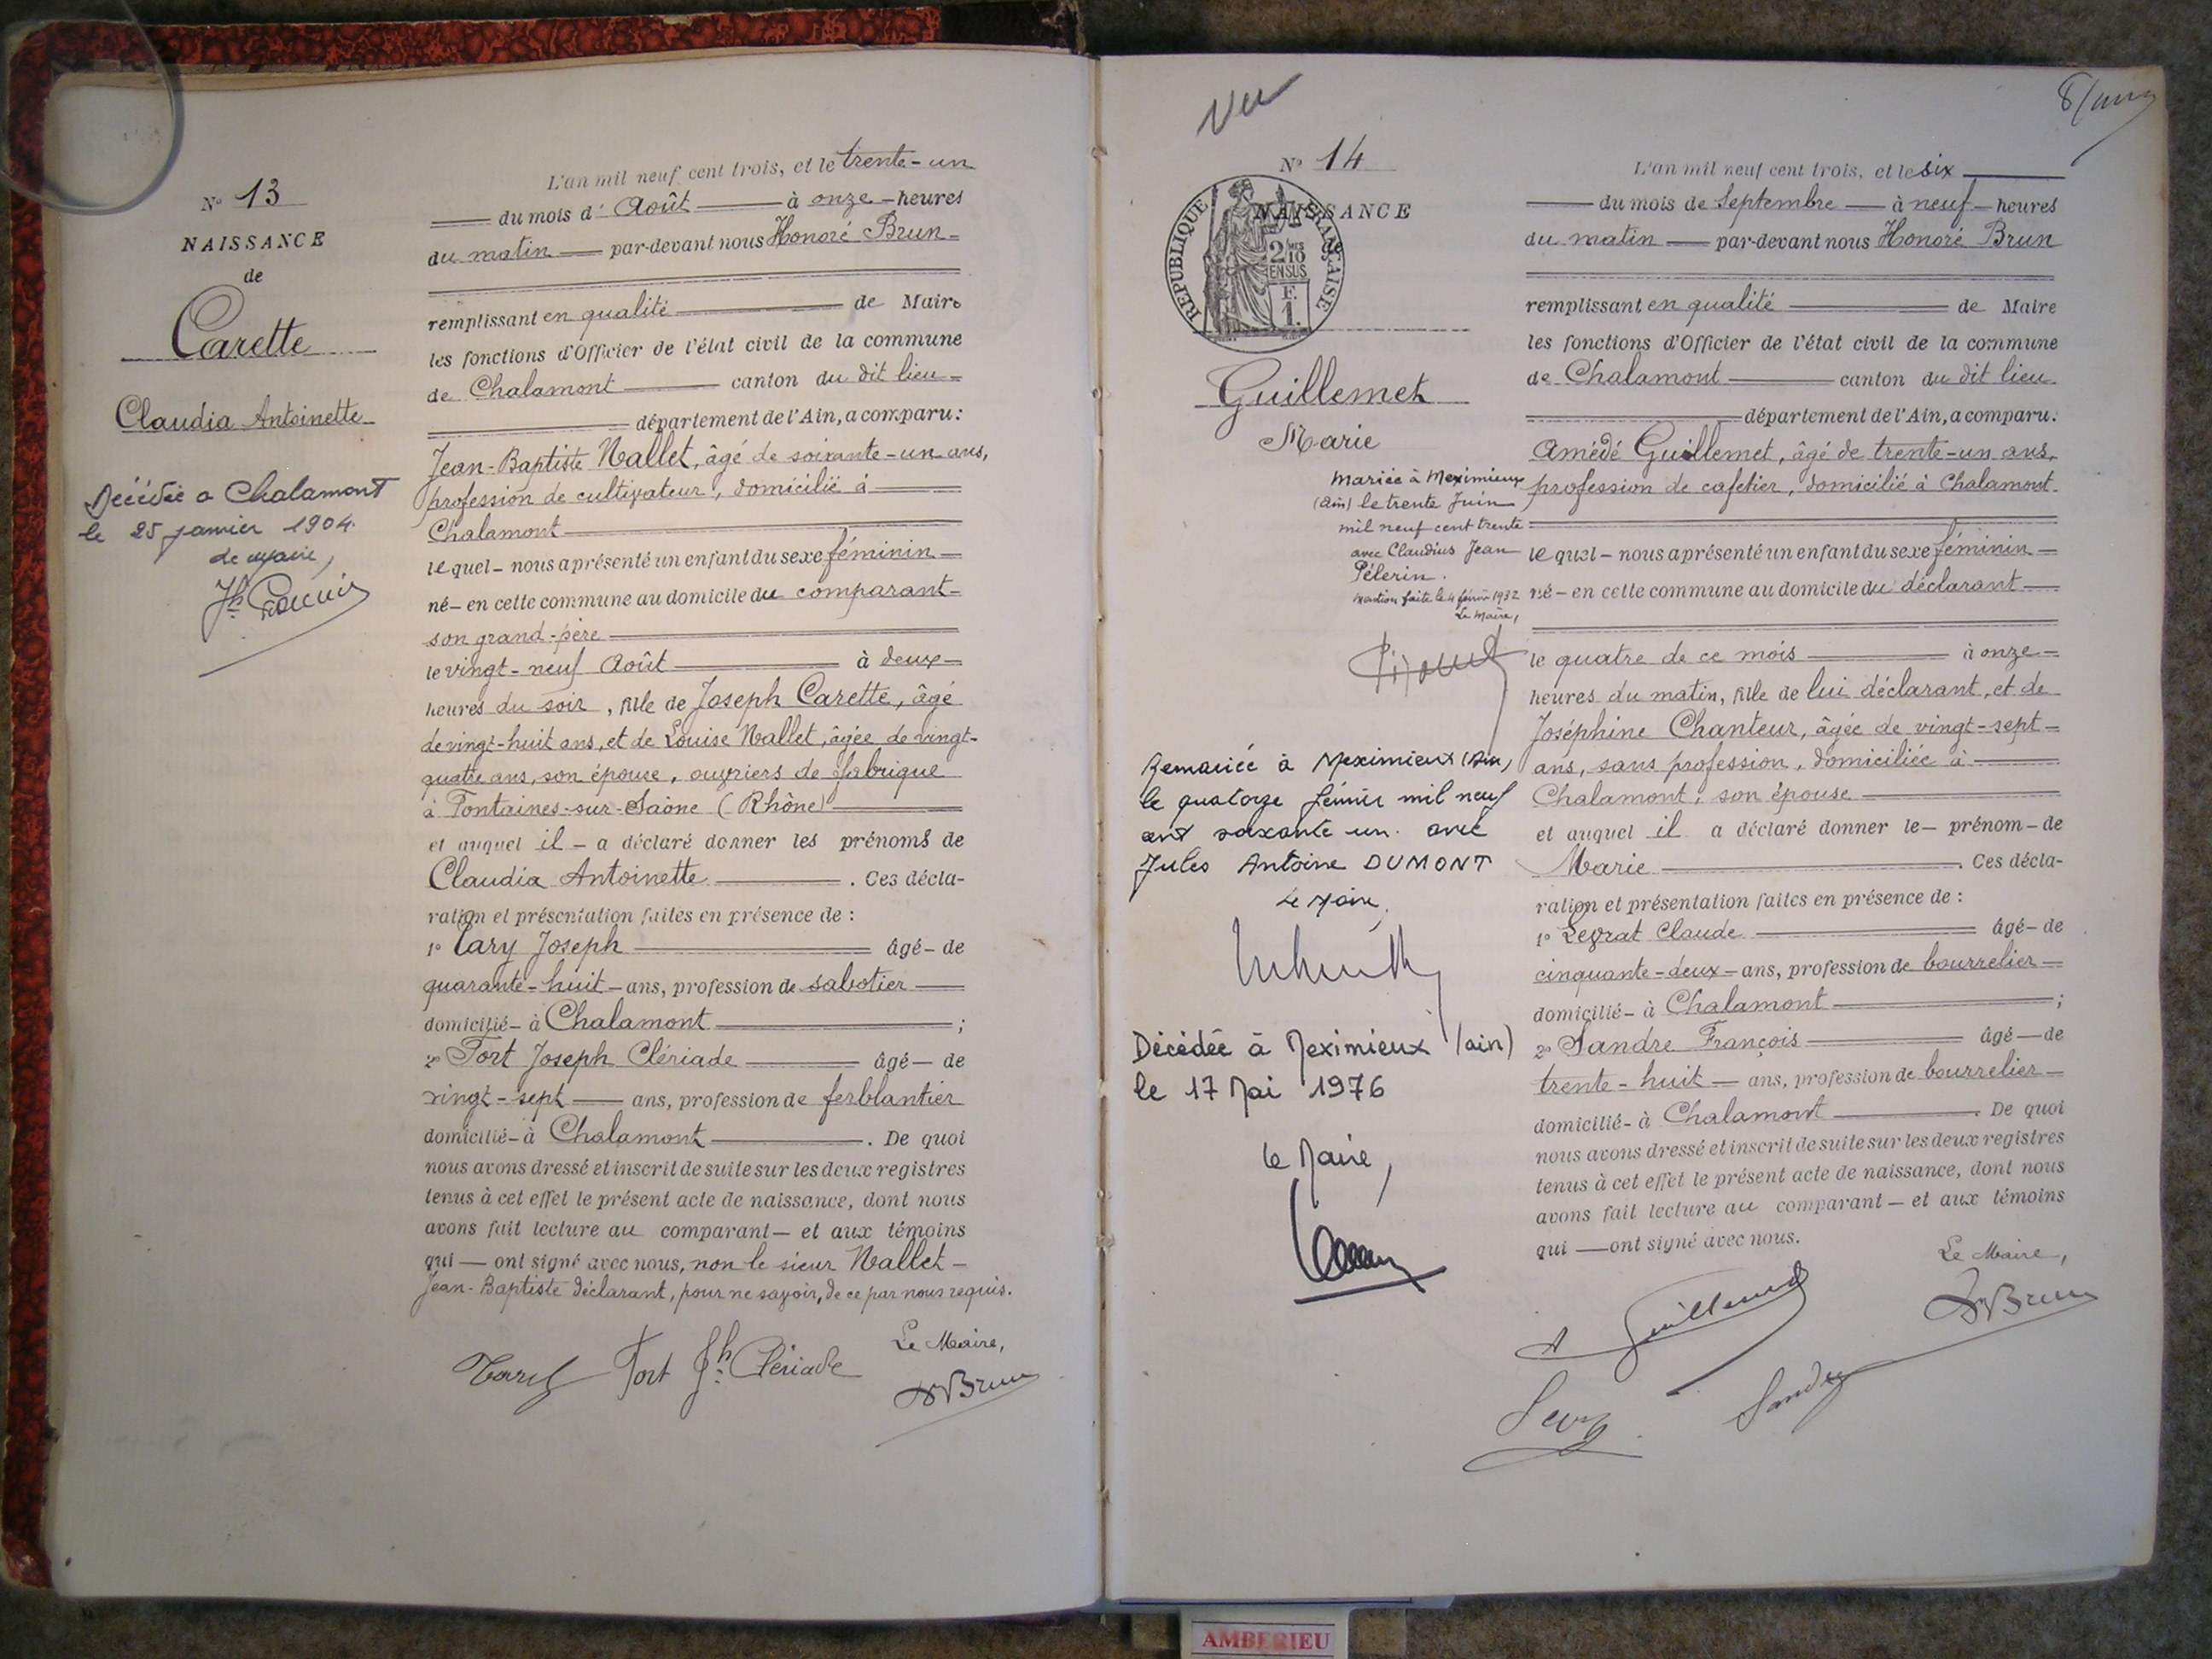 N° 13
NAISSANCE
de
Carette
Claudia Antoinette
Décédée a Chalamont
le 25 janvier 1904.
L'an mil neuf cent trois, et le trente-un
du mois d' Août à onze heures
du matin par-devant nous Honoré Brun
remplissant en qualité de Maire
les fonctions d'Officier de l'état civil de la commune
de Chalamont canton du dit lieu
département de l'Ain, a comparu:
Jean-Baptiste Nallet, âgé de soixante-un ans,
profession de cultivateur, domicilié à
Chalamont
lequel nous a présenté un enfant du sexe féminin
né en cette commune au domicile du comparant
son grand-père
le vingt-neuf Août à deux
heures du soir, fille de Joseph Carette, âgé
de vingt-huit ans, et de Louise Nallet, âgée de vingt-
quatre ans, son épouse, ouvriers de fabrique
à Fontaines-sur-Saône (Rhône)
et auquel il a déclaré donner les prénoms de
Claudia Antoinette. Ces décla-
ration et présentation faites en présence de :
1° Joseph âgé de
quarante-huit ans, profession de sabotier
domicilié à Chalamont ;
2° Fort Joseph Clériade âgé de
vingt-sept ans, profession de ferblantier
domicilié à Chalamont. De quoi
nous avons dressé et inscrit de suite sur les deux registres
tenus à cet effet le présent acte de naissance, dont nous
avons fait lecture au comparant et aux témoins
qui ont signé avec nous, non le sieur Nallet
Jean-Baptiste déclarant, pour ne savoir, de ce par nous requis.
Le Maire,
Fort Jh Clériade
Brun
Vu
N° 14
NAISSANCE
REPUBLIQUE FRANÇAISE
2/10
EN SUS
F.
1.
Guillemet
Marie
Mariée à Meximieux
(Ain) le trente Juin
mil neuf cent trente
avec Claudius Jean
Pélerin.
Mention faite le 4 février 1932
Le Maire,
Remariée à Meximieux (Ain)
le quatorze février mil neuf
cent soixante un avec
Jules Antoine DUMONT
Le Maire,
Décédée à Meximieux (ain)
le 17 Mai 1976
le Maire,
L'an mil neuf cent trois, et le six
du mois de Septembre à neuf heures
du matin par-devant nous Honoré Brun
remplissant en qualité de Maire
les fonctions d'Officier de l'état civil de la commune
de Chalamont canton du dit lieu
département de l'Ain, a comparu:
Amédé Guillemet, âgé de trente-un ans,
profession de cafetier, domicilié à Chalamont
lequel nous a présenté un enfant du sexe féminin
né en cette commune au domicile du déclarant
le quatre de ce mois à onze
heures du matin, fille de lui déclarant, et de
Joséphine Chanteur, âgée de vingt-sept
ans, sans profession, domiciliée à
Chalamont, son épouse
et auquel il a déclaré donner le prénom de
Marie. Ces décla-
ration et présentation faites en présence de :
1° Levrat Claude âgé de
cinquante-deux ans, profession de bourrelier
domicilié à Chalamont ;
2° Sandre François âgé de
trente-huit ans, profession de bourrelier
domicilié à Chalamont. De quoi
nous avons dressé et inscrit de suite sur les deux registres
tenus à cet effet le présent acte de naissance, dont nous
avons fait lecture au comparant et aux témoins
qui ont signé avec nous.
Le Maire,
A Guillemet
Brun
AMBERIEU